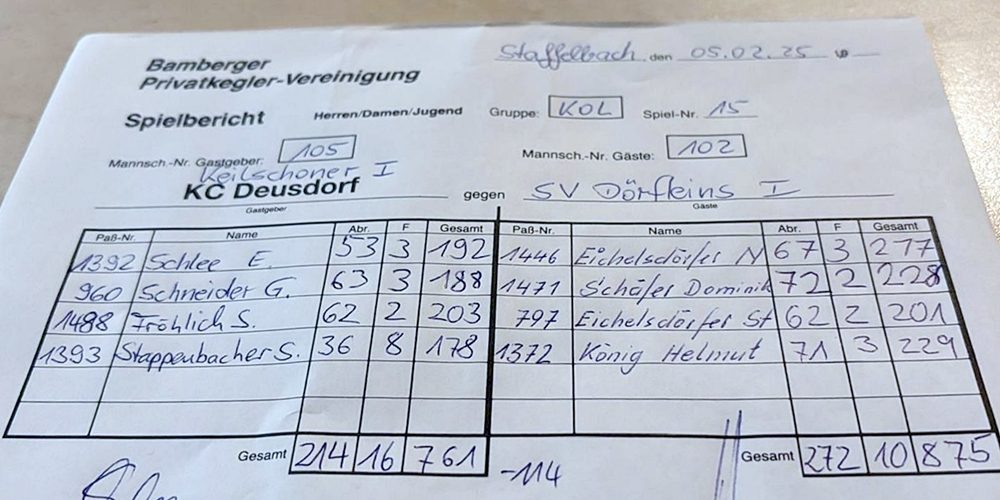 Bamberger
Privatkegler-Vereinigung
Staffelbach, den 05.02.25
Spielbericht Herren/Damen/Jugend Gruppe: KOL Spiel-Nr. 15
Mannsch.-Nr. Gastgeber: 105 Mannsch.-Nr. Gäste: 102
Keilschoner I
KC Deusdorf gegen SV Dörfleins I
Gastgeber Gäste
Paß-Nr. Name Abr. F Gesamt Paß-Nr. Name Abr. F Gesamt
1392 Schlee E. 53 3 192 1446 Eichelsdörfer N 67 3 217
960 Schneider G. 63 3 188 1471 Schäfer Dominik 72 2 228
1498 Fröhlich S. 62 2 203 797 Eichelsdörfer St 62 2 201
1393 Stappenbacher S. 36 8 178 1372 König Helmut 71 3 229
Gesamt 214 16 761 -114 Gesamt 272 10 875